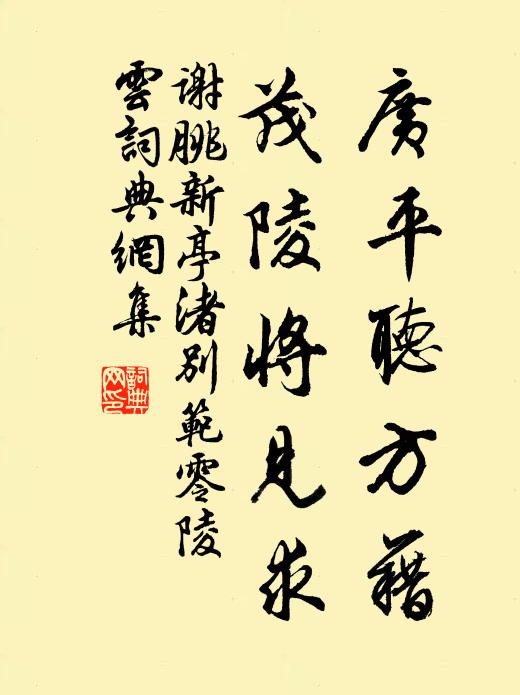 廣平聽方藉
茂陵將見求
謝脁新亭渚別範零陵
雲詞典網集
詞典
网印